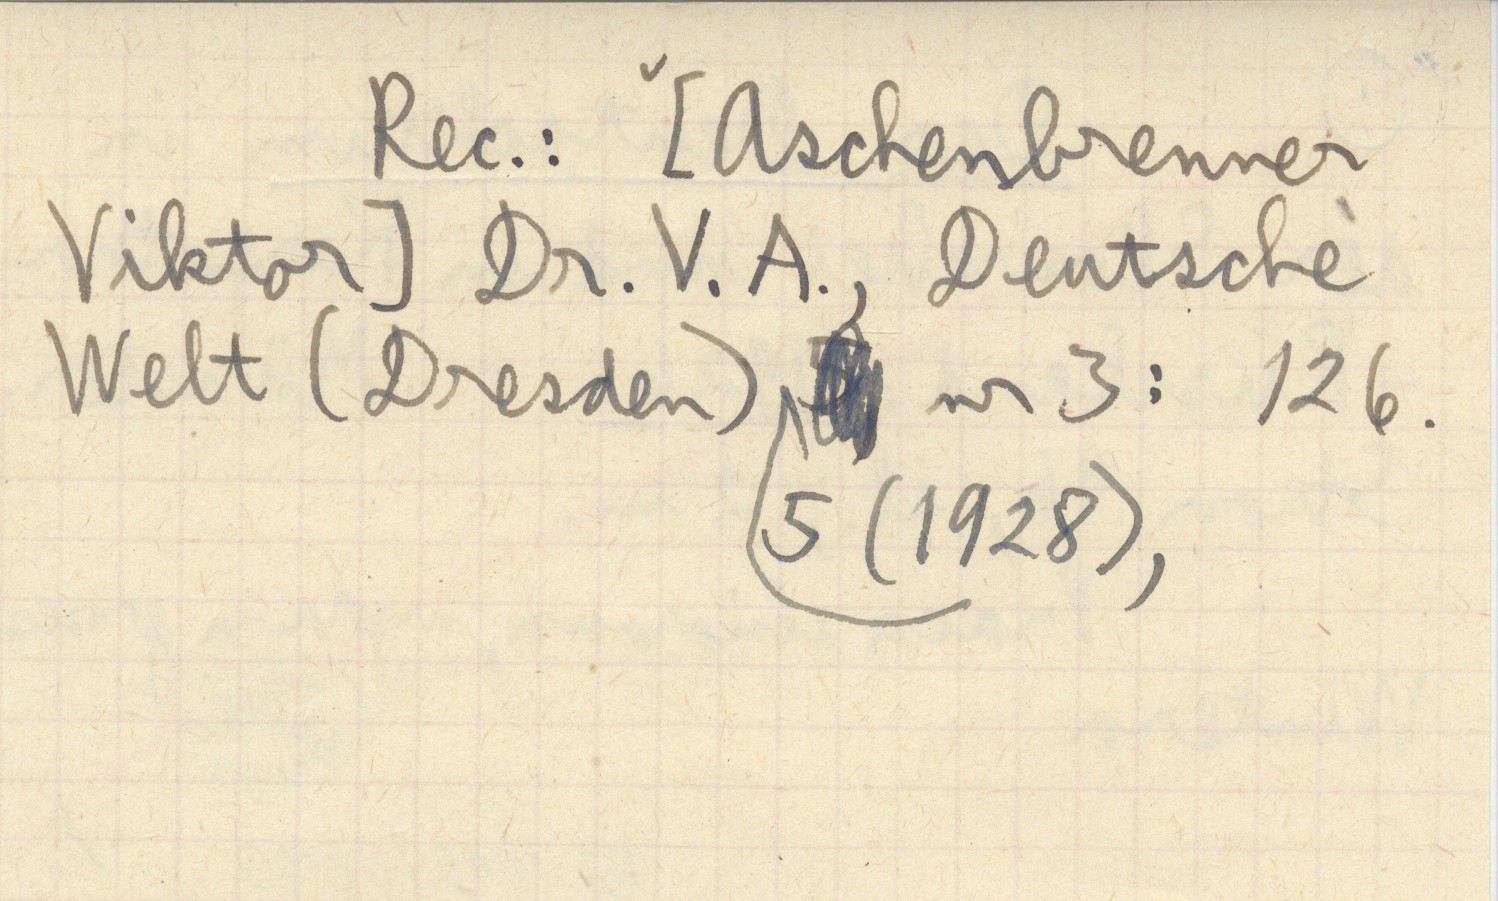 Rec.: [Aschenbrenner
Viktor] Dr. V. A., Deutsche
Welt (Dresden) nr 3: 126.
5 (1928),